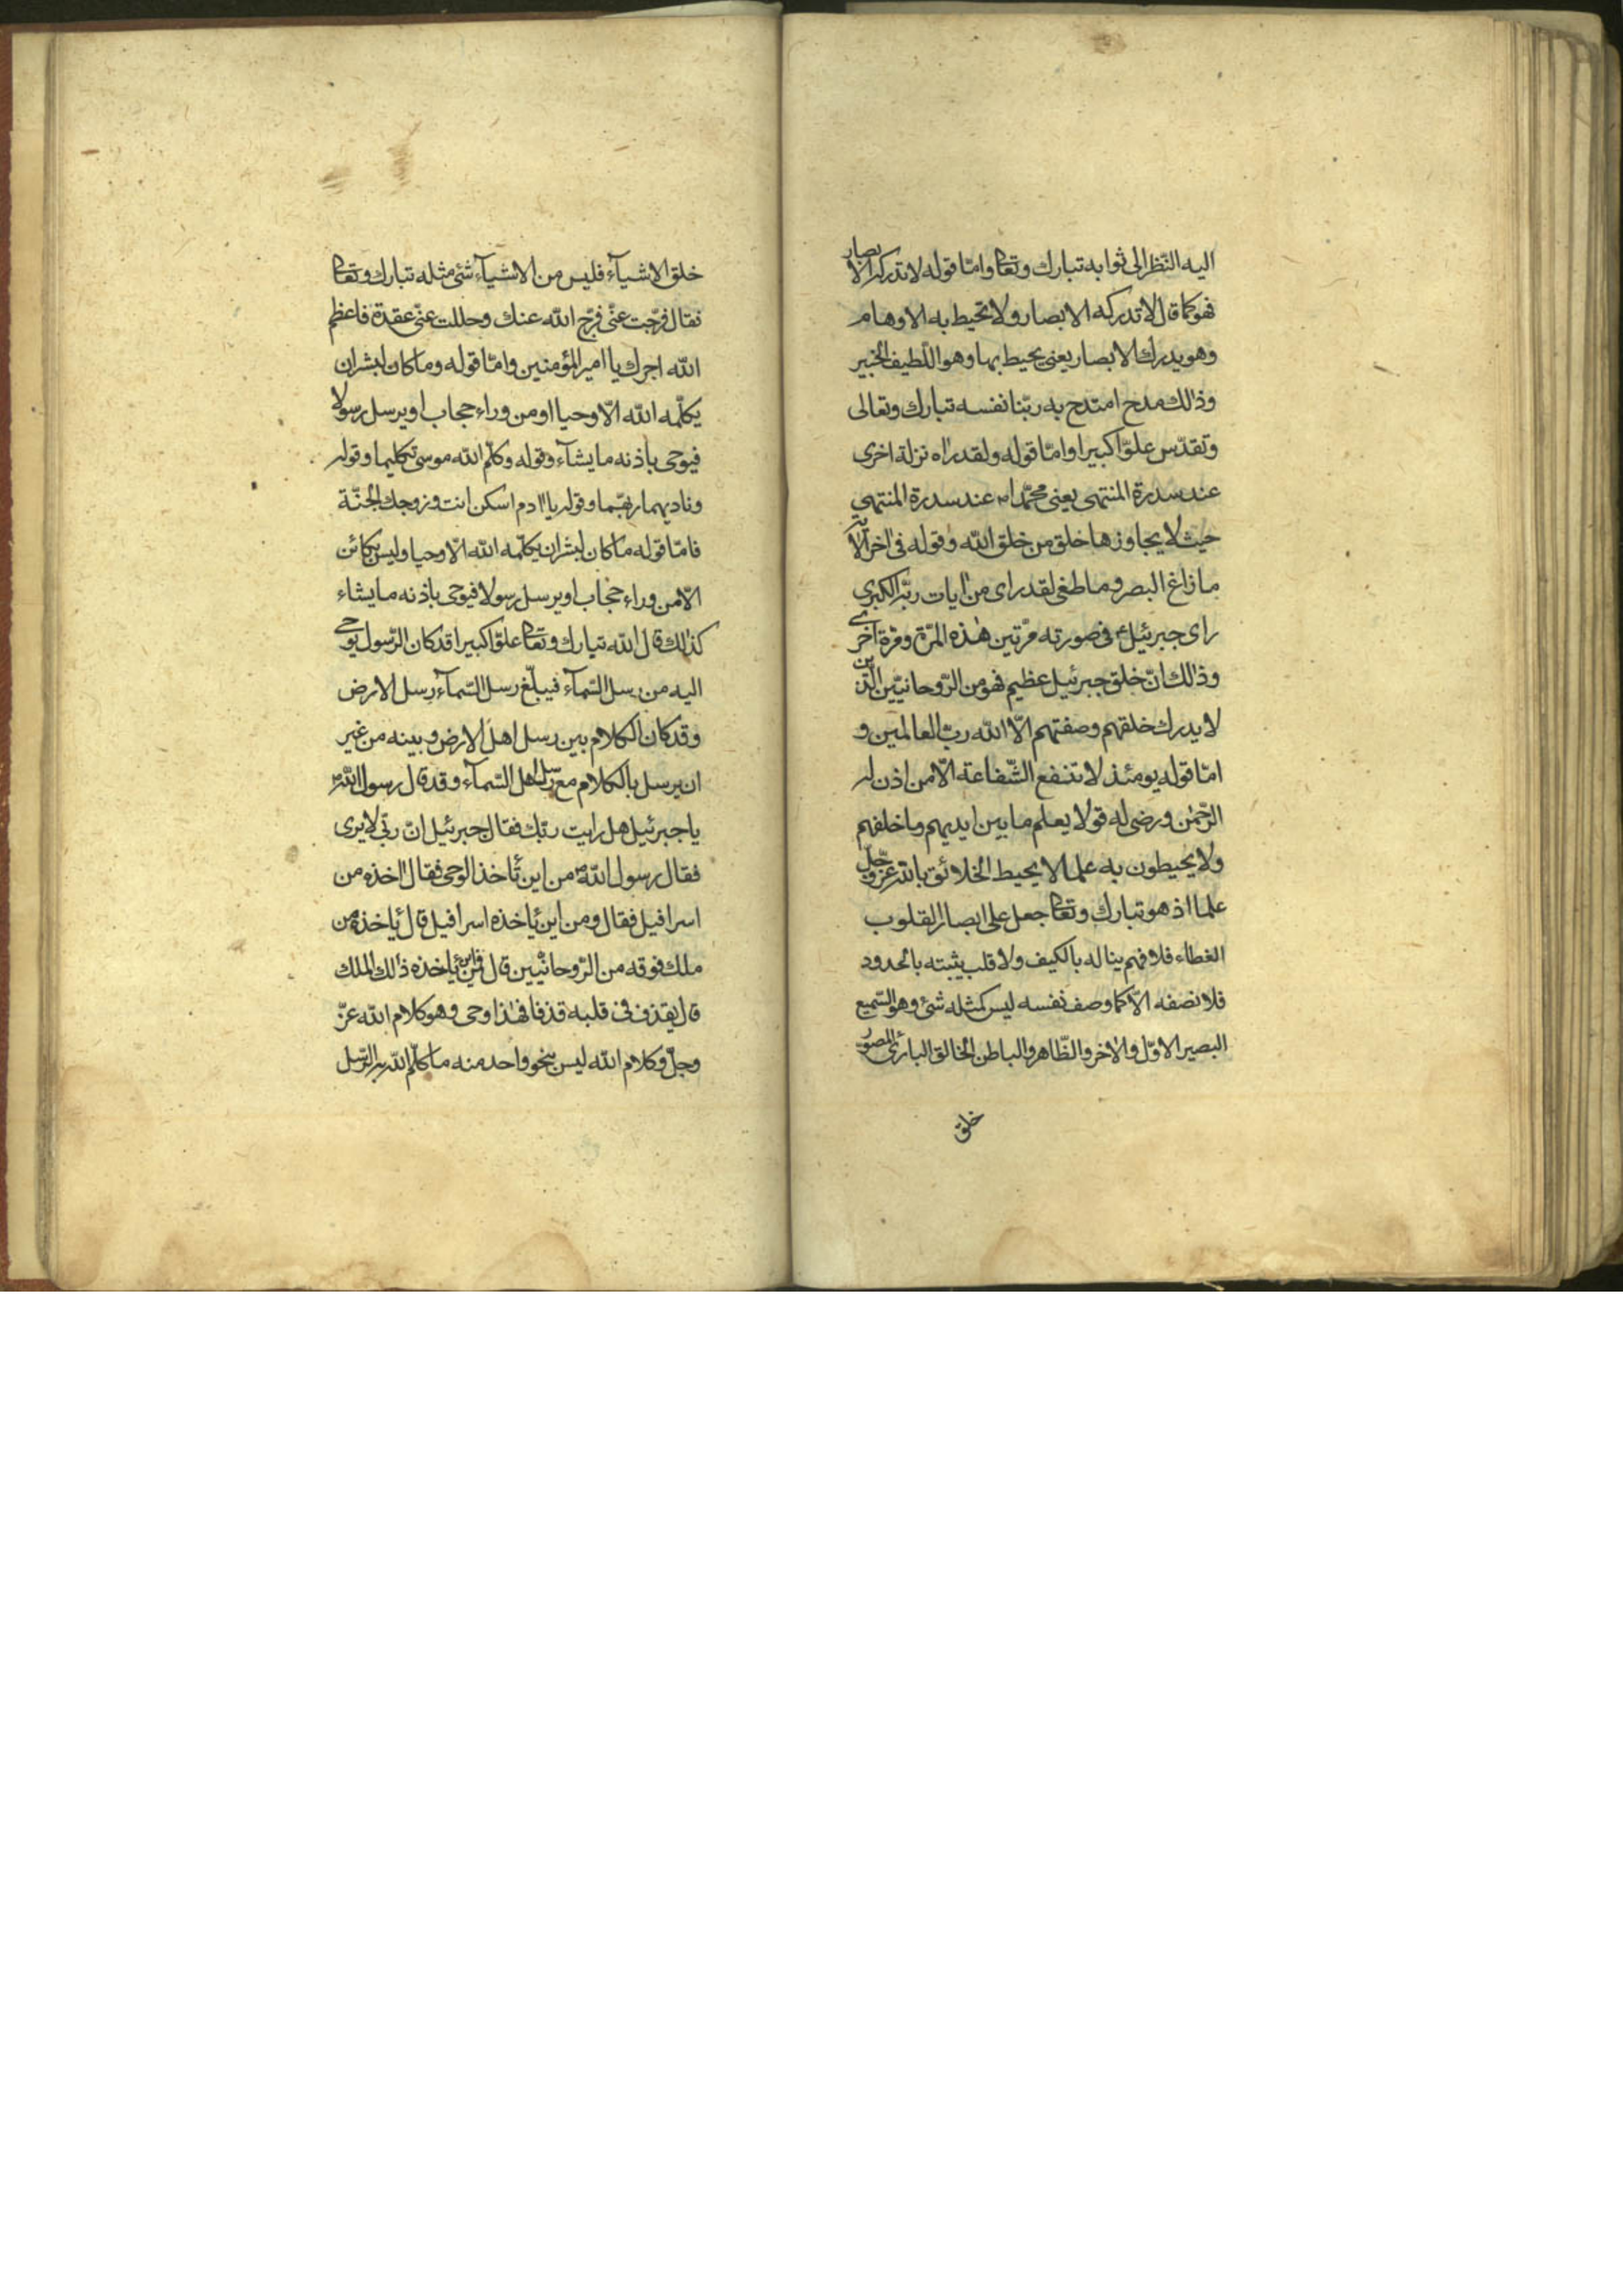 اليه النّظر الى ثوابه تبارك وتعا وامّا قوله لا تدركه الابصار
فهو كما قال لا تدركه الابصار ولا تحيط به الاوهام
وهو يدرك الابصار يعنى يحيط بها وهو اللّطيف الخبير
وذالك مدح امتدح به ربّنا نفسه تبارك وتعالى
وتقدّس علوّا كبيرا وامّا قوله ولقد راه نزلة اخرى
عند سدرة المنتهى يعنى محمّدا ص عند سدرة المنتهى
حيث لا يجاوزها خلق من خلق الله وقوله فى اخر الاية
ما زاغ البصر وما طغى لقد راى من ايات ربّه الكبرى
راى جبرئيل ع فى صورته مرّتين هذه المرّة ومرّة اخرى
وذالك انّ خلق جبرئيل عظيم فهو من الرّوحانيّين الّذين
لا يدرك خلقهم وصفتهم الّا الله ربّ العالمين و
امّا قوله يومئذ لا تنفع الشّفاعة الّا من اذن له
الرّحمن ورضى له قولا يعلم ما بين ايديهم وما خلفهم
ولا يحيطون به علما لا يحيط الخلائق بالله عزّ وجلّ
علما اذ هو تبارك وتعا جعل على ابصار القلوب
الغطاء فلا فهم يناله بالكيف ولا قلب يثبته بالحدود
فلا نصفه الّا كما وصف نفسه ليس كمثله شئ وهو السّميع
البصير الاوّل والاخر والظّاهر والباطن الخالق البارئ المصوّر
خلق
خلق الاشيآء فليس من الاشيآء شئ مثله تبارك وتعا
فقال فرّجت عنّى فرّج الله عنك وحللت عنّى عقدة فاعظم
الله اجرك يا امير المؤمنين وامّا قوله وما كان لبشر ان
يكلّمه الله الّا وحيا او من وراء حجاب او يرسل رسولا
فيوحى باذنه ما يشآء وقوله وكلّم الله موسى تكليما وقوله
وناديهما ربّهما وقوله يا ادم اسكن انت وزوجك الجنّة
فامّا قوله ما كان لبشر ان يكلّمه الله الّا وحيا وليس بكائن
الّا من وراء حجاب او يرسل رسولا فيوحى باذنه ما يشاء
كذلك قال الله تبارك وتعا علوّا كبيرا قد كان الرّسول يوحى
اليه من رسل السّمآء فيبلّغ رسل السّمآء رسل الارض
وقد كان الكلام بين رسل اهل الارض وبينه من غير
ان يرسل بالكلام مع رسل اهل السّمآء وقد قال رسول الله ص
يا جبرئيل هل رايت ربّك فقال جبرئيل انّ ربّى لا يرى
فقال رسول الله ص من اين تأخذ الوحى فقال اخذه من
اسرافيل فقال ومن اين يأخذه اسرافيل قال يأخذه من
ملك فوقه من الرّوحانيّين قال فمن اين يأخذه ذالك الملك
قال يقذف فى قلبه قذفا فهذا وحى وهو كلام الله عزّ
وجلّ وكلام الله ليس بنحو واحد منه ما كلّم الله به الرّسل